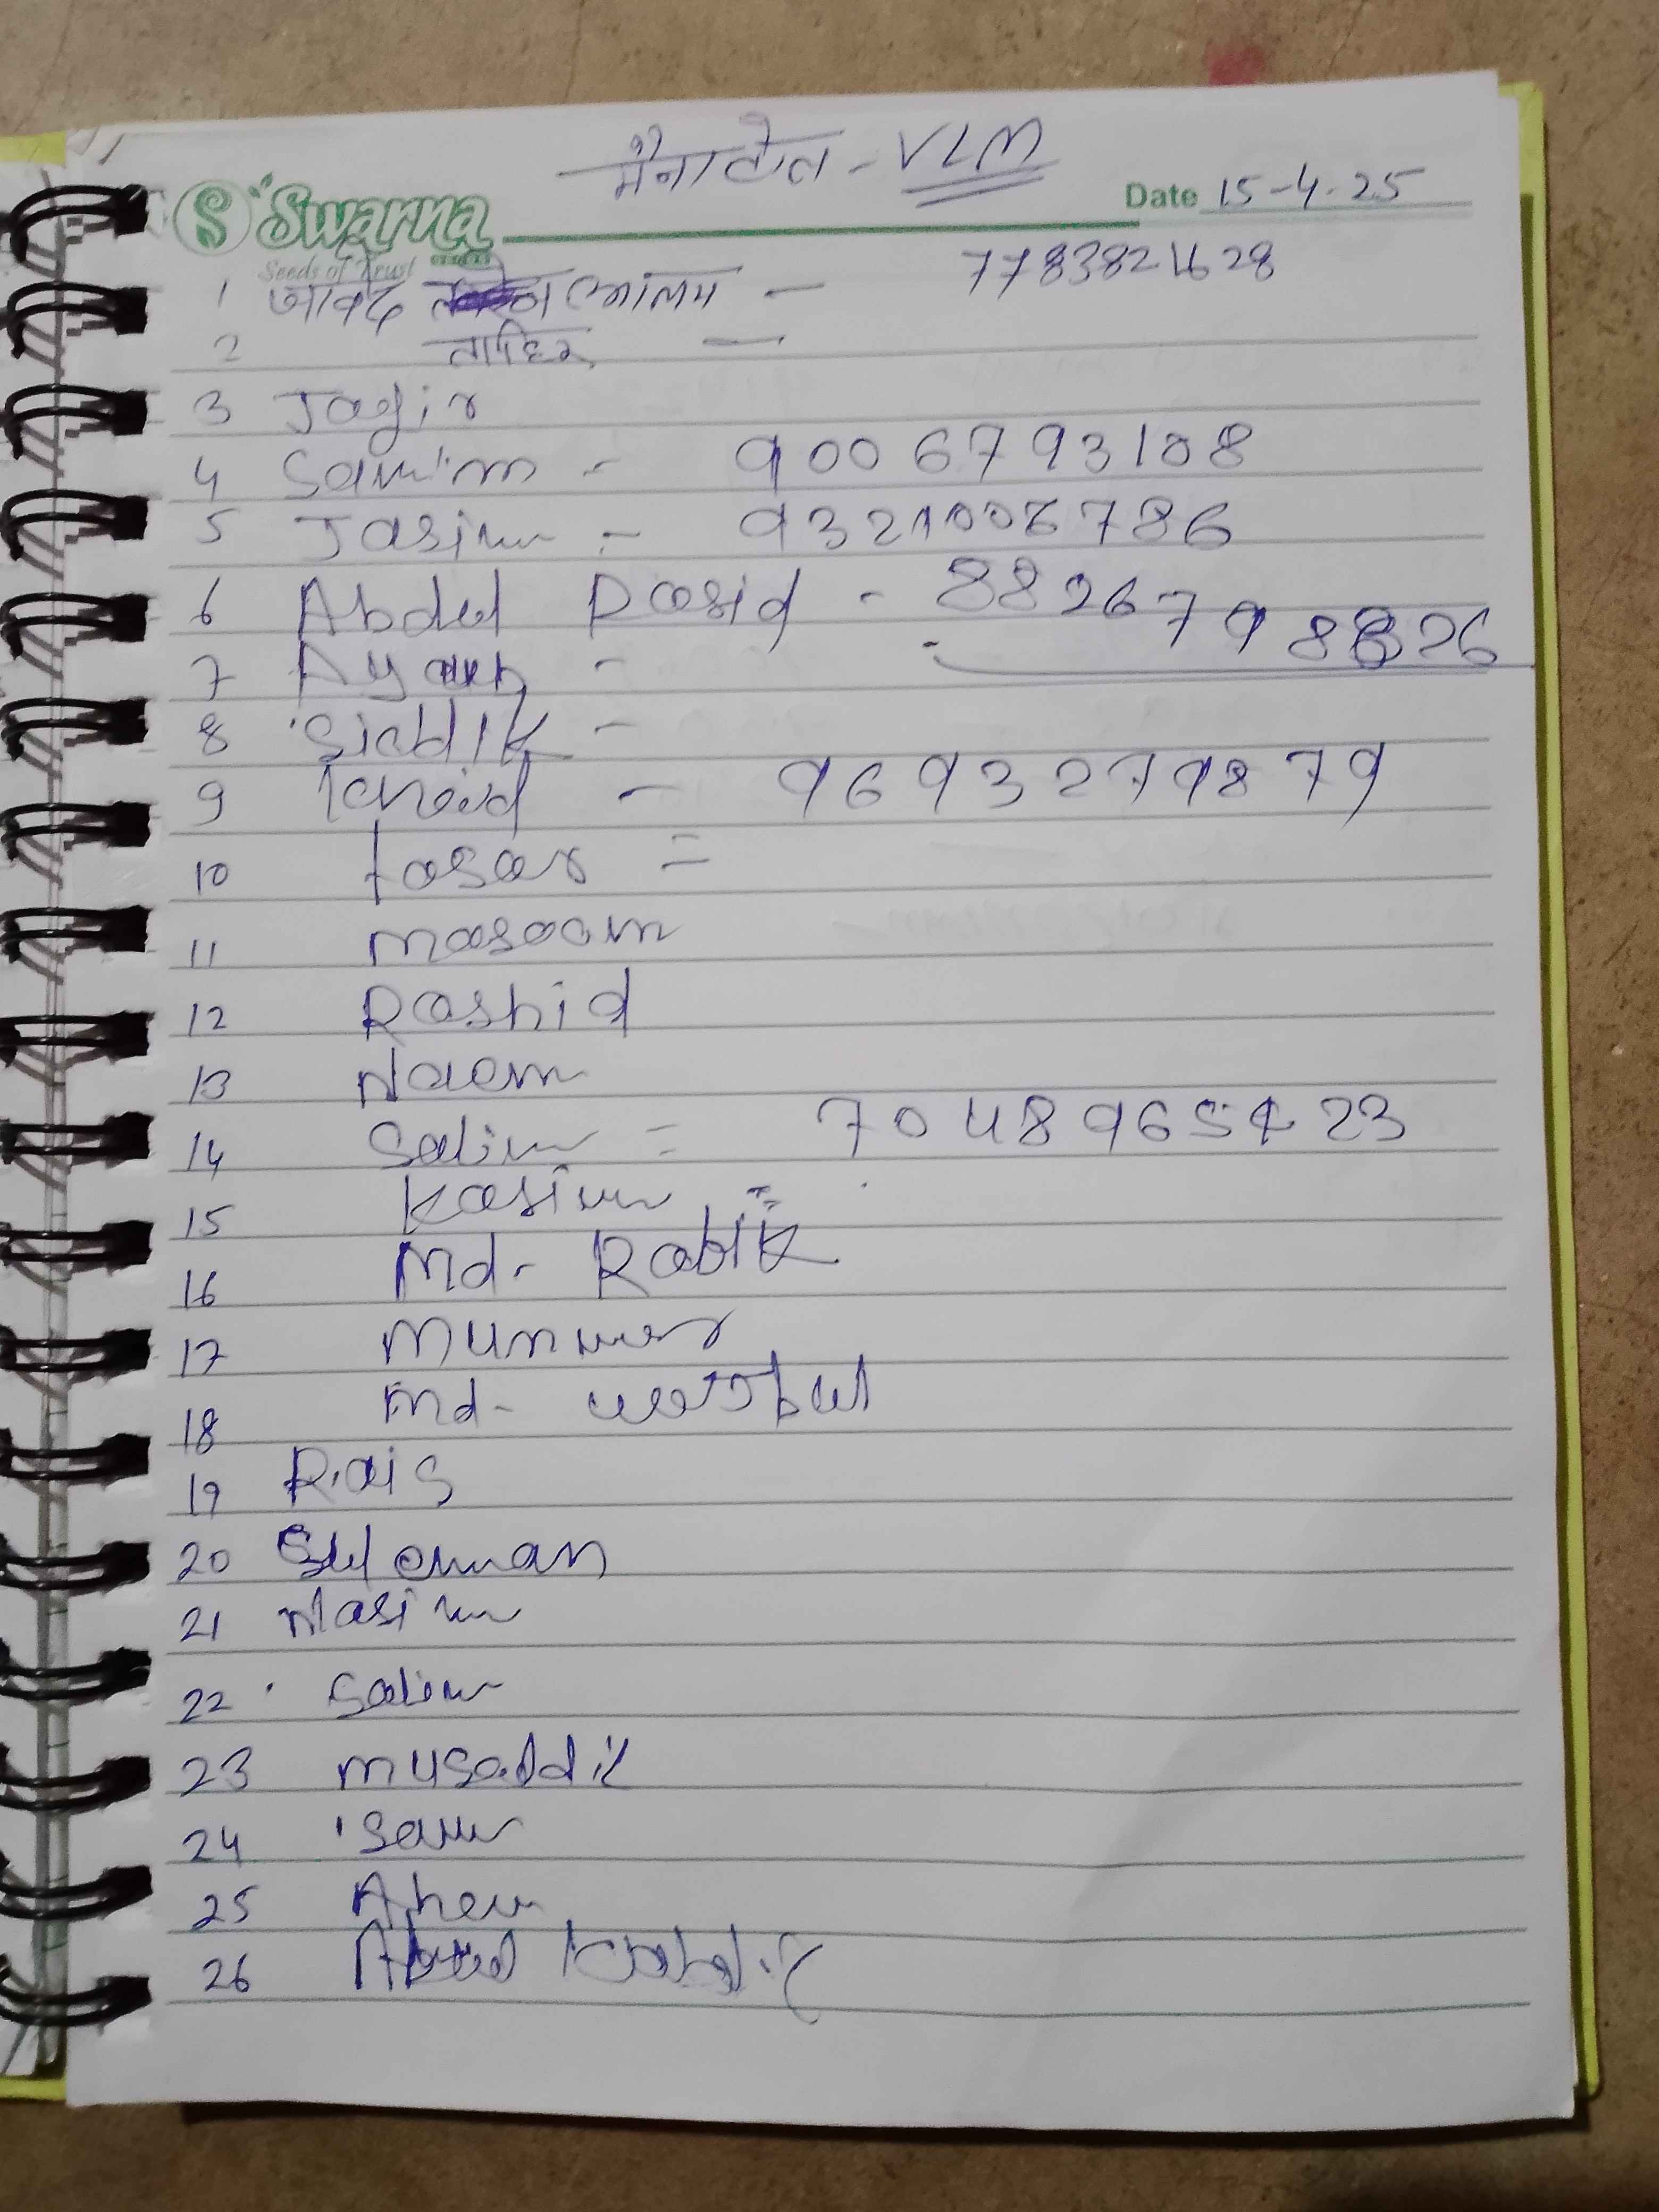 मैनाटोल - VLM
Swarna
Seeds of Trust
Date 15-4-25
1 जावेद आलम - 7783821628
2 ताहिर -
3 Jagir
4 Samim - 9006793108
5 Jasim - 9321006786
6 Abdul Rasid - 8826798826
7 Ayan -
8 Siddik -
9 - 9693279879
10 Fasar =
11 Masoom
12 Rashid
13 Naem
14 Salim = 7048965423
15 Kasim =
16 Md- Rabik
17 Munwer
18 Md-
19 Rais
20 Suleman
21 Nasim
22 Salim
23 Musaddik
24 Sam
25
26